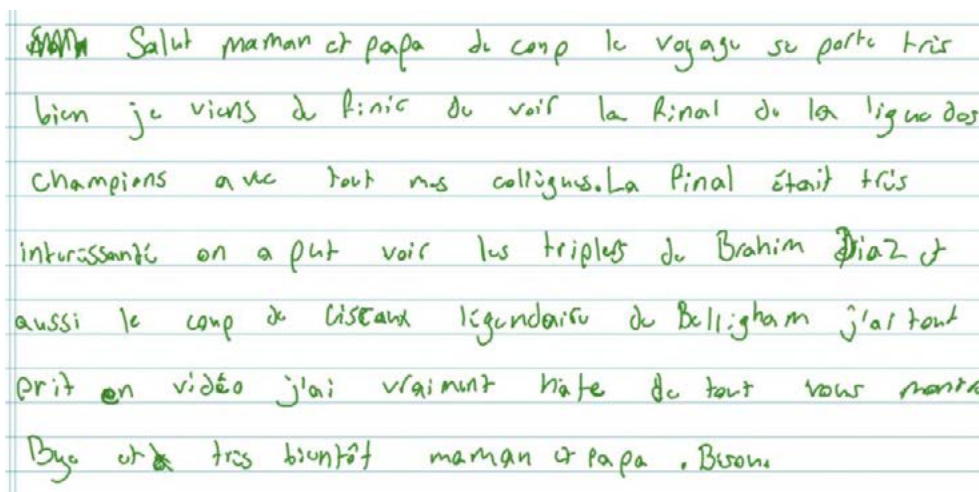 Salut maman et papa du coup le voyage se porte très
bien je viens de finir de voir la final de la ligue des
champions avec tout mes collègues. La final était très
interéssante on a put voir les triplets de Brahim Diaz et
aussi le coup de ciseaux légendaire de Belligham j'ai tout
prit en vidéo j'ai vraiment hâte de tout vous montre
Bye et à très bientôt maman et papa.